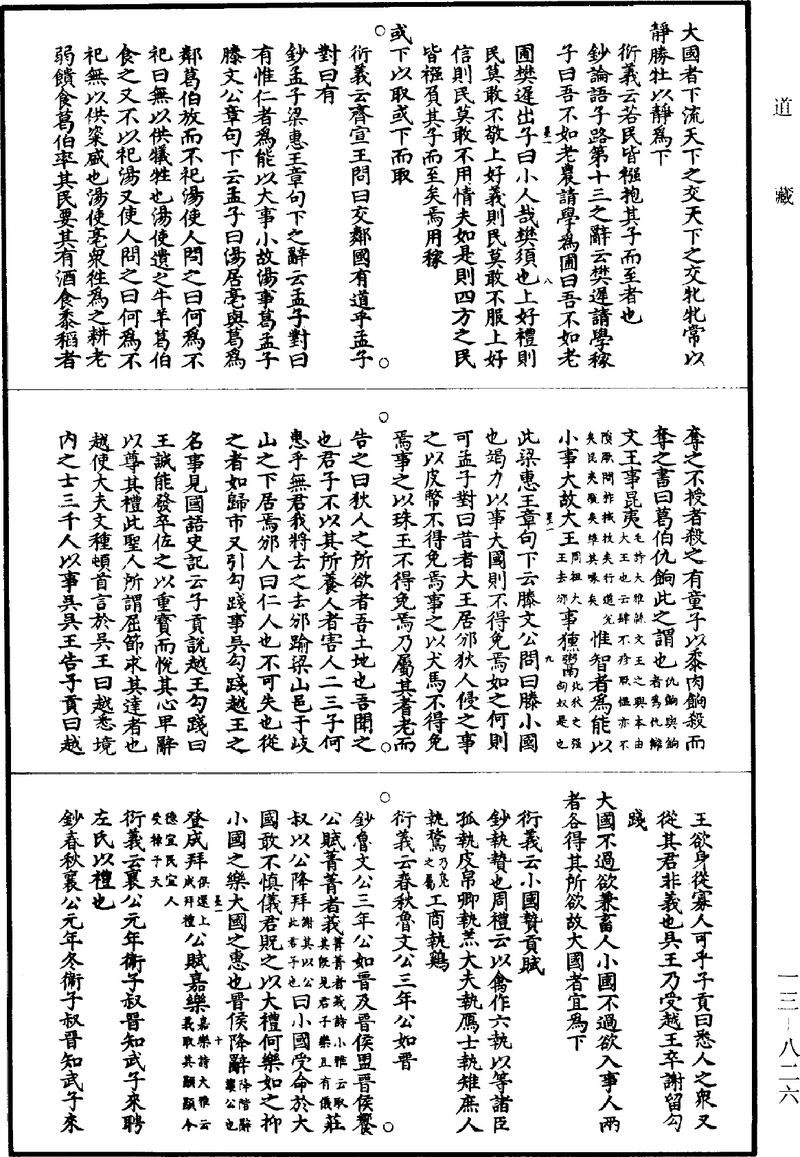 道藏
大國者下流天下之交天下之交牝牝常以
靜勝牡以靜為下
衍義云若民皆襁抱其子而至者也
鈔論語子路第十三之辭云樊遲請學稼
子曰吾不如老農請學為圃曰吾不如老
圃樊遲出子曰小人哉樊須也上好禮則
民莫敢不敬上好義則民莫敢不服上好
信則民莫敢不用情夫如是則四方之民
皆襁負其子而至矣焉用稼
或下以取或下而取
衍義云齊宣王問曰交鄰國有道乎孟子
對曰有
鈔孟子梁惠王章句下之辭云孟子對曰
有惟仁者為能以大事小故湯事葛孟子
滕文公章句下云孟子曰湯居亳與葛為
鄰葛伯放而不祀湯使人問之曰何為不
祀曰無以供犧牲也湯使遺之牛羊葛伯
食之又不以祀湯又使人問之曰何為不
祀無以供粢盛也湯使亳衆往為之耕老
弱饋食葛伯率其民要其有酒食黍稻者
奪之不授者殺之有童子以黍肉餉殺而
奪之書曰葛伯仇餉此之謂也仇餉與餉者為仇讎
文王事昆夷毛詩大雅緜文王之興本由大王也云肆不殄厥慍亦不隕厥問柞棫拔矣行道兌矣昆夷駾矣維其喙矣惟智者為能以
小事大故大王周祖大王去邠事獯鬻北狄之強匈奴是也
此梁惠王章句下云滕文公問曰滕小國
也竭力以事大國則不得免焉如之何則
可孟子對曰昔者大王居邠狄人侵之事
之以皮幣不得免焉事之以犬馬不得免
焉事之以珠玉不得免焉乃屬其耆老而
告之曰狄人之所欲者吾土地也吾聞之
也君子不以其所養人者害人二三子何
患乎無君我將去之去邠踰梁山邑于岐
山之下居焉邠人曰仁人也不可失也從
之者如歸市又引勾踐事吳勾踐越王之
名事見國語史記云子貢說越王勾踐曰
王誠能發卒佐之以重寶而悅其心卑辭
以尊其禮此聖人所謂屈節求其達者也
越使大夫文種頓首言於吳王曰越悉境
內之士三千人以事吳吳王告子貢曰越
王欲身從寡人可乎子貢曰悉人之衆又
從其君非義也具王乃受越王卒謝留勾
踐
大國不過欲兼畜人小國不過欲入事人兩
者各得其所欲故大國者宜為下
衍義云小國贄貢賦
鈔執贄也周禮云以禽作六執以等諸臣
孤執皮帛卿執羔大夫執鴈士執雉庶人
執鶩乃凫之屬工商執鷄
衍義云春秋魯文公三年公如晉
鈔魯文公三年公如晉及晉侯盟晉侯饗
公賦菁菁者莪菁菁者莪詩小雅云取其既見君子樂且有儀莊
叔以公降拜謝其以公比君子也曰小國受命於大
國敢不慎儀君貺之以大禮何樂如之抑
小國之樂大國之惠也晉侯降辭降階辭讓公也
登成拜俱還上成拜禮公賦嘉樂嘉樂詩大雅云義取其顯顯令德宜民宜人受祿于天
衍義云襄公元年衛子叔晉知武子來聘
左氏以禮也
鈔春秋襄公元年冬衛子叔晉知武子來
一三-八二六